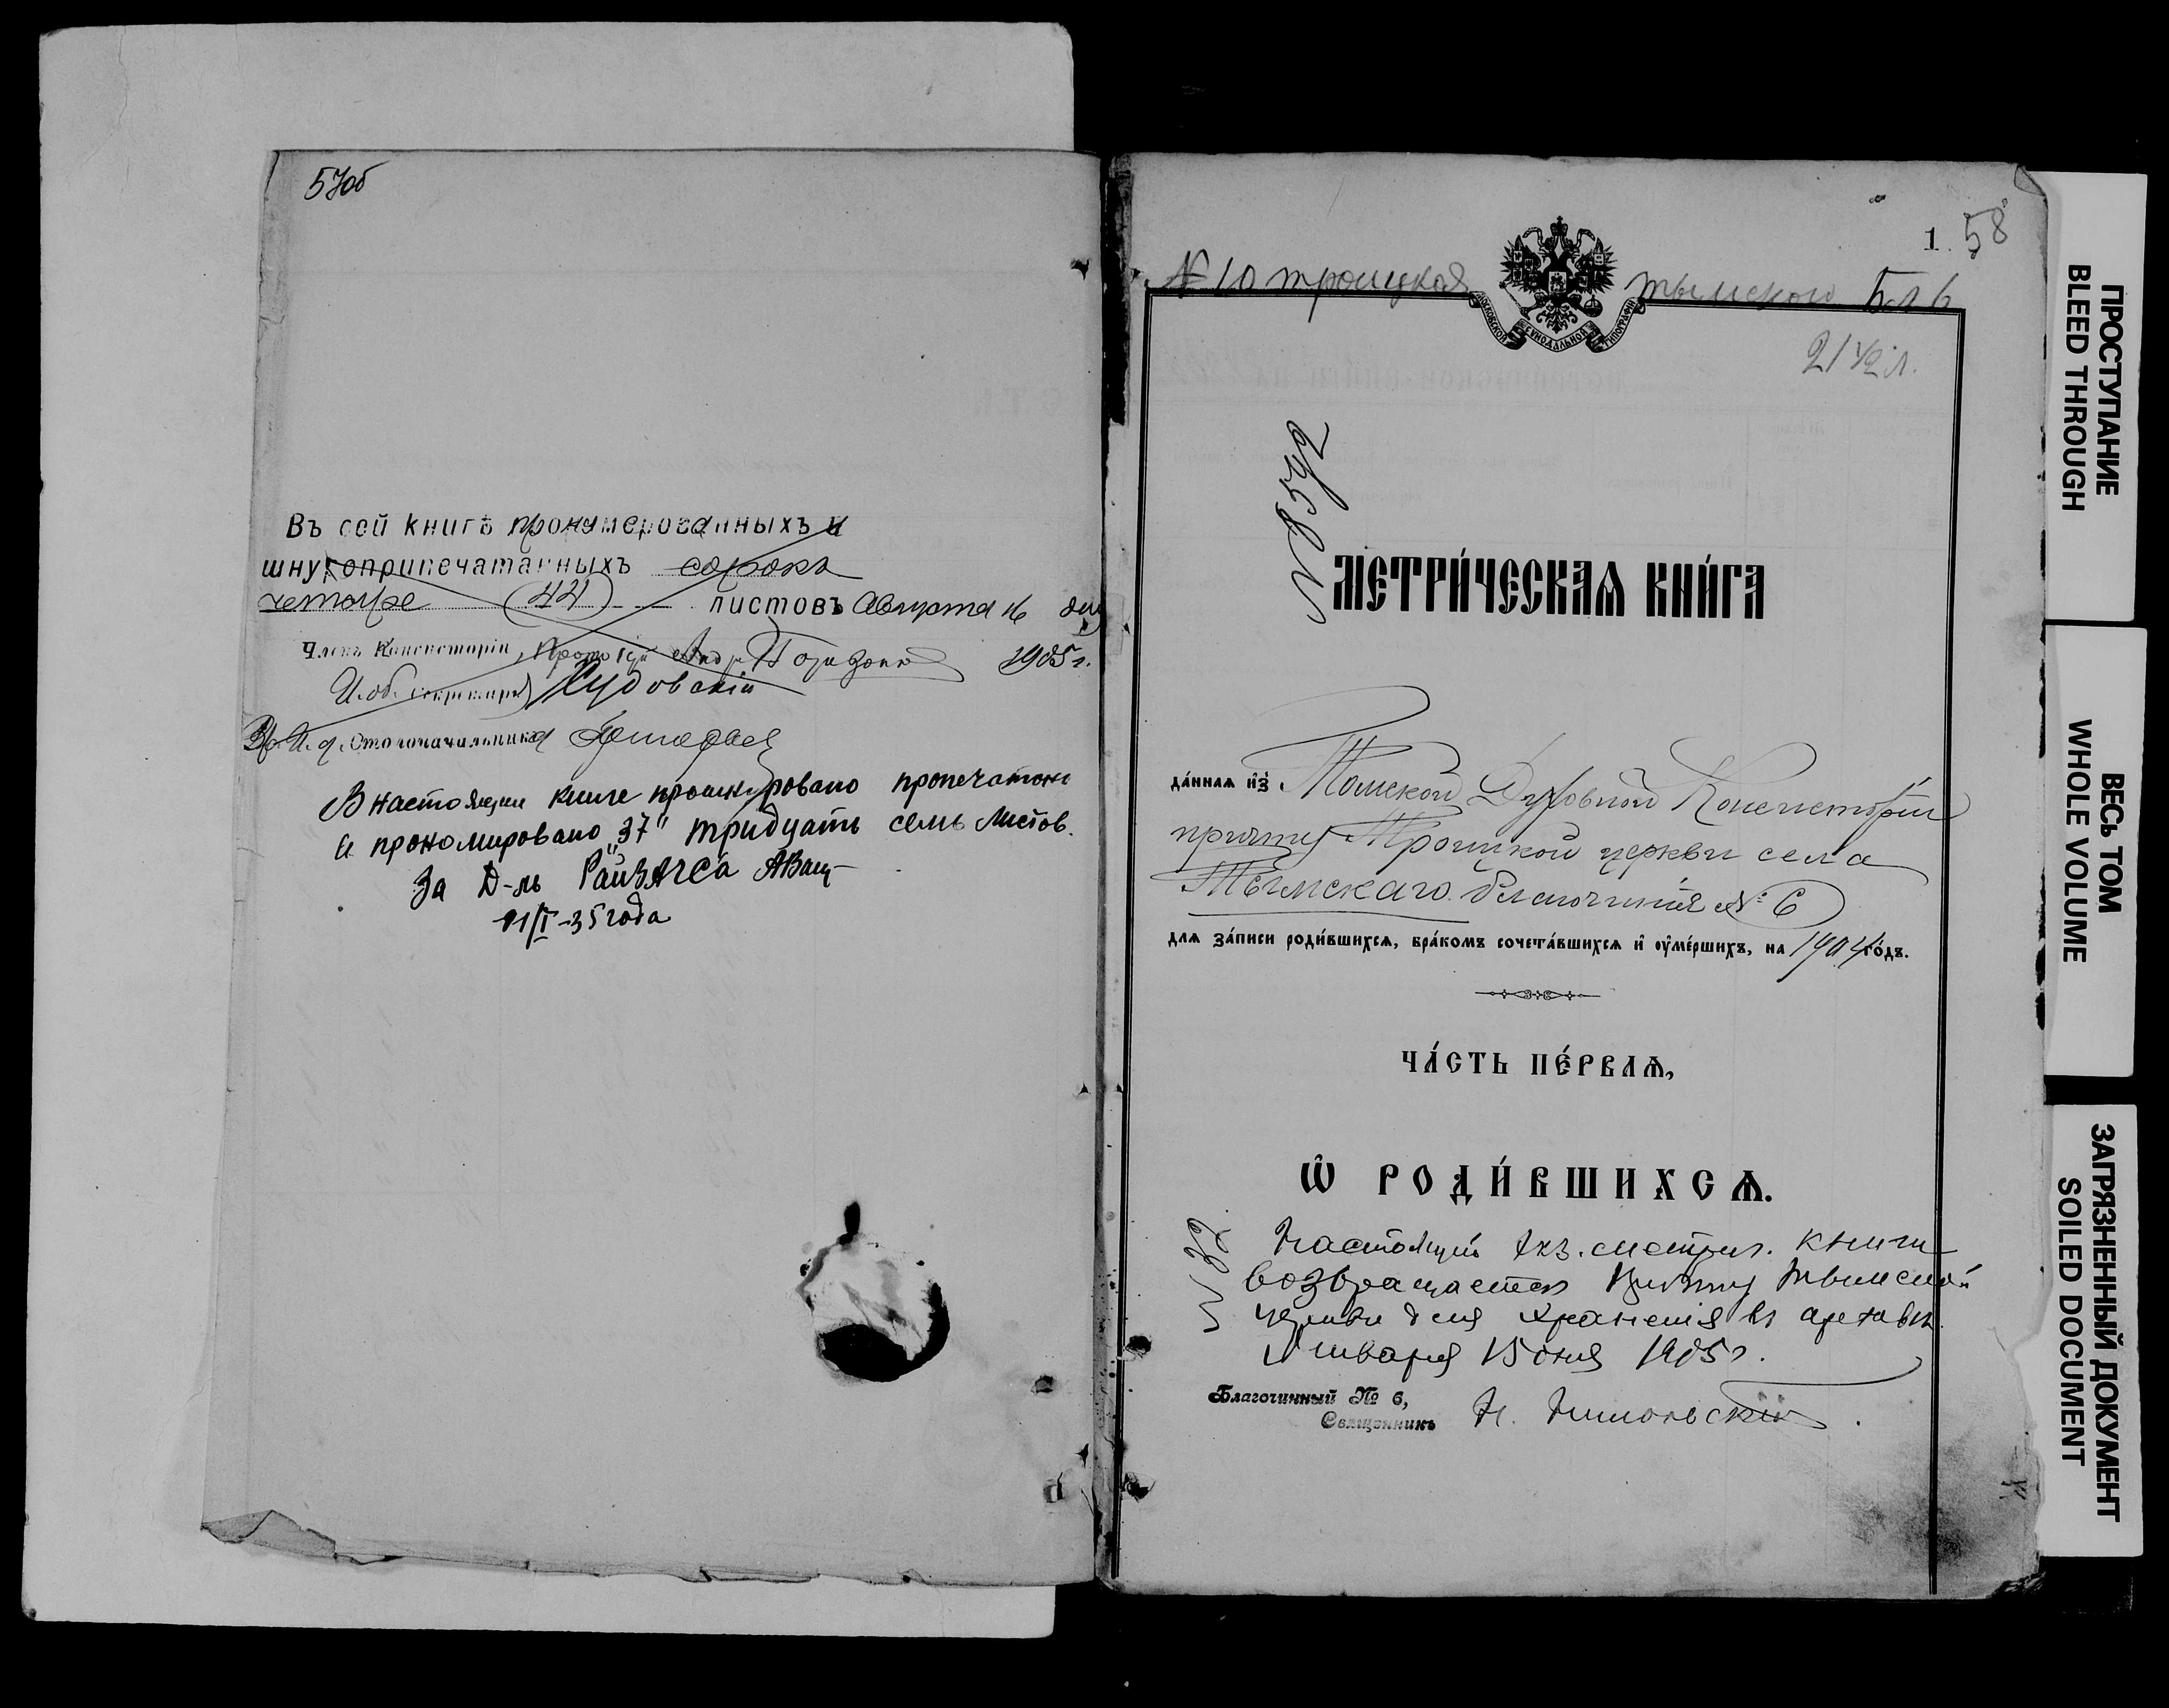 57об
Въ сей книгѣ пронумерованныхъ и
шнуроприпечатанныхъ сорокъ
четыре (44) листовъ Августа 16 дня
Членъ Консисторіи, Андр 1905 г.
И. об. секретаря
И. д. Столоначальника
В настоящей книге прошнуровано пропечатано
и прономировано „37" тридцать семь листов.
За Д-ль РайЗАГСа
21/I-35 года
1. 58
№ 10 троицкая тымского Бл 6
МОСКОВСКОЙ СѴНОДАЛЬНОЙ ТИПОГРАФІИ
21 1/2 л.
№ 8592
МЕТРИ́ЧЕСКАѦ КНИ́ГА
да́ннаѧ и҆з̾ Томской Духовной Консисторіи
причту Троицкой церкви села
Тымскаго благочинія № 6
для за́писи роди́вшихсѧ, бра́комъ сочета́вшихсѧ и҆ ᲂу҆ме́ршихъ, на 1904 го́дъ.
ЧА́СТЬ ПЕ́РВАѦ,
Ѽ РОДИ́ВШИХСѦ.
№ 32
Настоящій экз. метрич. книги
возвращается причту Тымской
церкви для храненія въ архивѣ.
Января 15 дня 1905 г.
Благочинный № 6,
Священникъ Н. Никольскій
ПРОСТУПАНИЕ
BLEED THROUGH
ВЕСЬ ТОМ
WHOLE VOLUME
ЗАГРЯЗНЕННЫЙ ДОКУМЕНТ
SOILED DOCUMENT